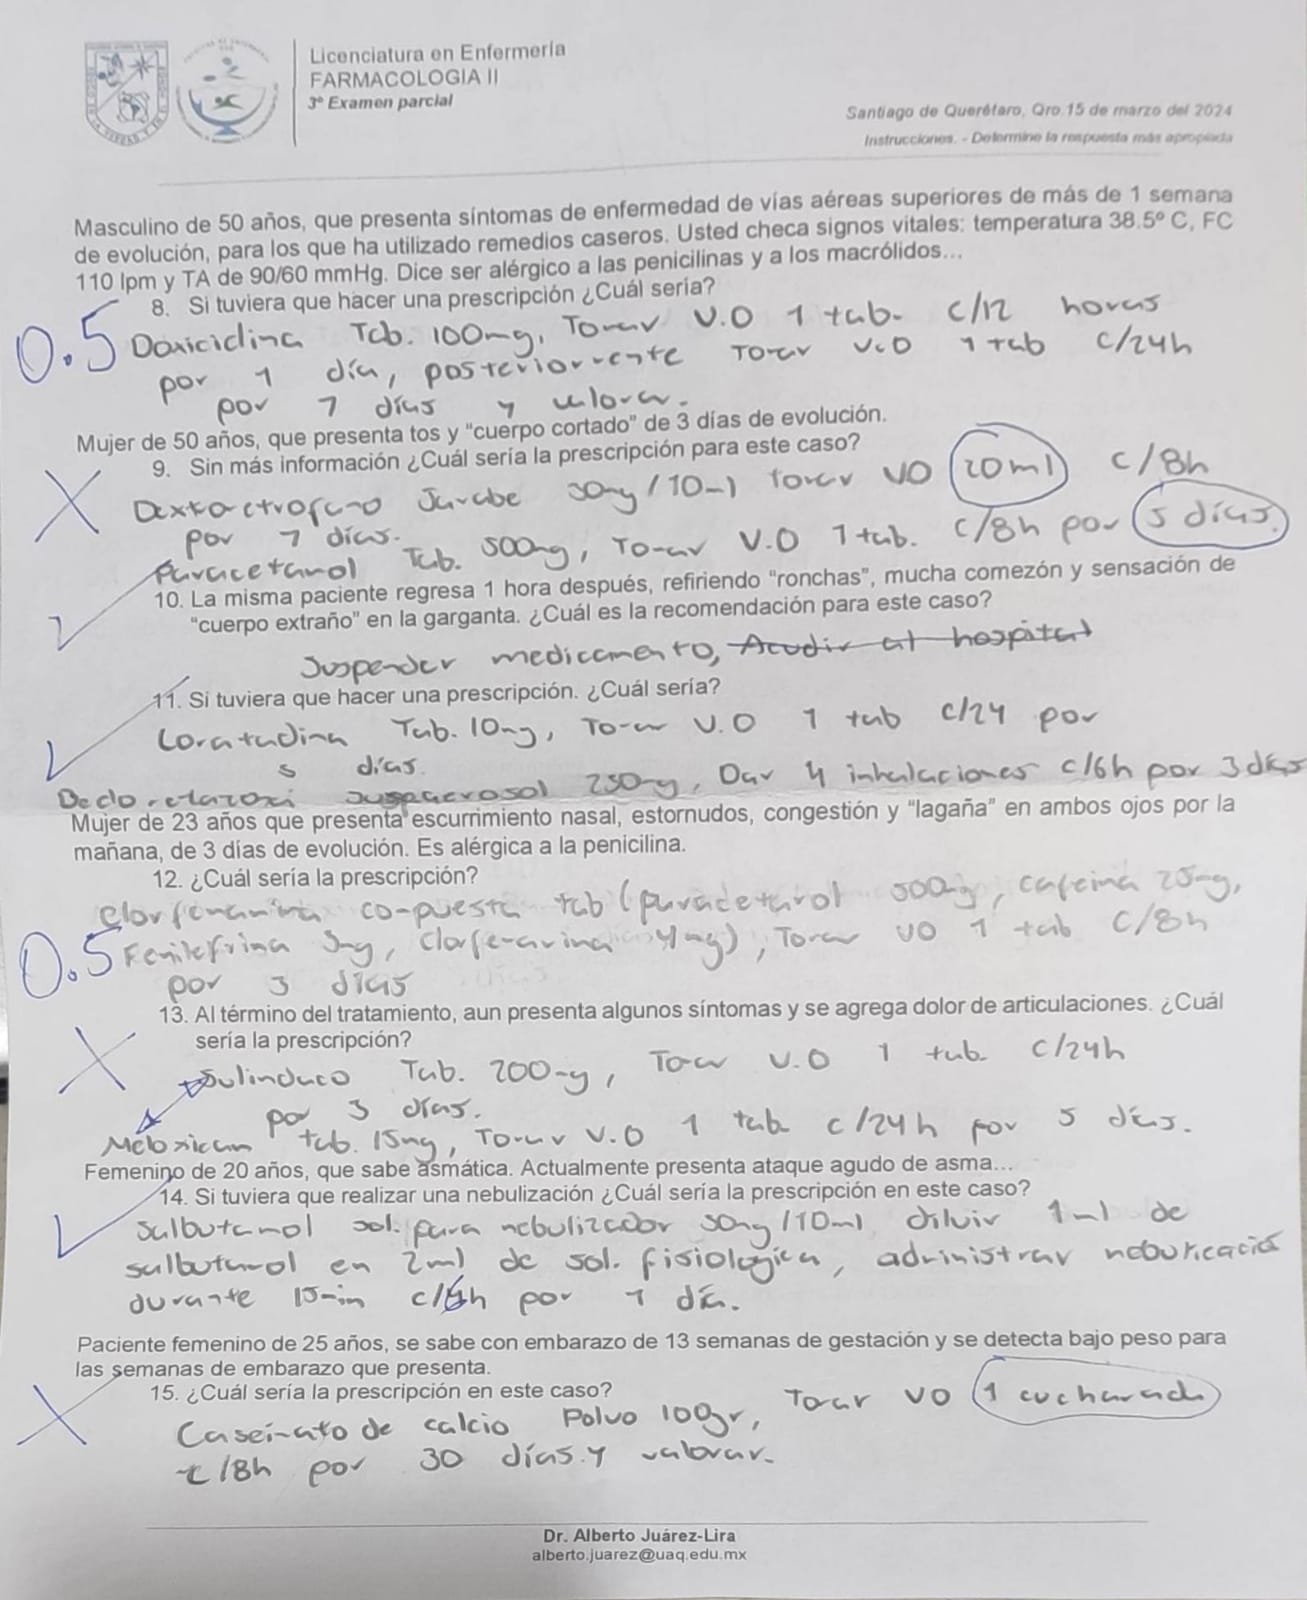 Licenciatura en Enfermería
FARMACOLOGIA II
3º Examen parcial
Santiago de Querétaro, Qro 15 de marzo del 2024
Instrucciones. - Determine la respuesta más apropiada
Masculino de 50 años, que presenta síntomas de enfermedad de vías aéreas superiores de más de 1 semana
de evolución, para los que ha utilizado remedios caseros. Usted checa signos vitales: temperatura 38.5º C, FC
110 lpm y TA de 90/60 mmHg. Dice ser alérgico a las penicilinas y a los macrólidos...
8. Si tuviera que hacer una prescripción ¿Cuál sería?
0.5
Doxiciclina Tab. 100mg, Tomar V.O 1 tab. c/12 horas
por 1 día, posteriormente Tomar V.O 1 tab c/24h
por 7 días y valorar.
Mujer de 50 años, que presenta tos y "cuerpo cortado" de 3 días de evolución.
9. Sin más información ¿Cuál sería la prescripción para este caso?
Jarabe 30mg/10ml tomar VO 20ml c/8h
por 7 días.
Paracetamol Tab. 500mg, Tomar V.O 1 tab. c/8h por 5 días.
10. La misma paciente regresa 1 hora después, refiriendo "ronchas", mucha comezón y sensación de
"cuerpo extraño" en la garganta. ¿Cuál es la recomendación para este caso?
Suspender medicamento, Acudir al hospital
11. Si tuviera que hacer una prescripción. ¿Cuál sería?
Loratadina Tab. 10mg, Tomar V.O 1 tab c/24 por
5 días.
250mg, Dar 4 inhalaciones c/6h por 3 días
Mujer de 23 años que presenta escurrimiento nasal, estornudos, congestión y "lagaña" en ambos ojos por la
mañana, de 3 días de evolución. Es alérgica a la penicilina.
12. ¿Cuál sería la prescripción?
Clorfenamina compuesta tab (paracetamol 500mg, cafeina 25mg,
0.5
Fenilefrina 5mg, clorfenamina 4mg), Tomar VO 1 tab c/8h
por 3 días
13. Al término del tratamiento, aun presenta algunos síntomas y se agrega dolor de articulaciones. ¿Cuál
sería la prescripción?
Sulindaco Tab. 200mg, Tomar V.O 1 tab. c/24h
por 3 días.
Meloxicam tab. 15mg, Tomar V.O 1 tab c/24h por 5 días.
Femenino de 20 años, que sabe asmática. Actualmente presenta ataque agudo de asma...
14. Si tuviera que realizar una nebulización ¿Cuál sería la prescripción en este caso?
Salbutamol sol. para nebulizador 50mg/10ml diluir 1ml de
salbutamol en 2ml de sol. fisiológica, administrar
durante 15min c/6h por 1 día.
Paciente femenino de 25 años, se sabe con embarazo de 13 semanas de gestación y se detecta bajo peso para
las semanas de embarazo que presenta.
15. ¿Cuál sería la prescripción en este caso?
Caseinato de calcio Polvo 100gr, Tomar VO 1 cucharada
c/8h por 30 días y valorar.
Dr. Alberto Juárez-Lira
alberto.juarez@uaq.edu.mx